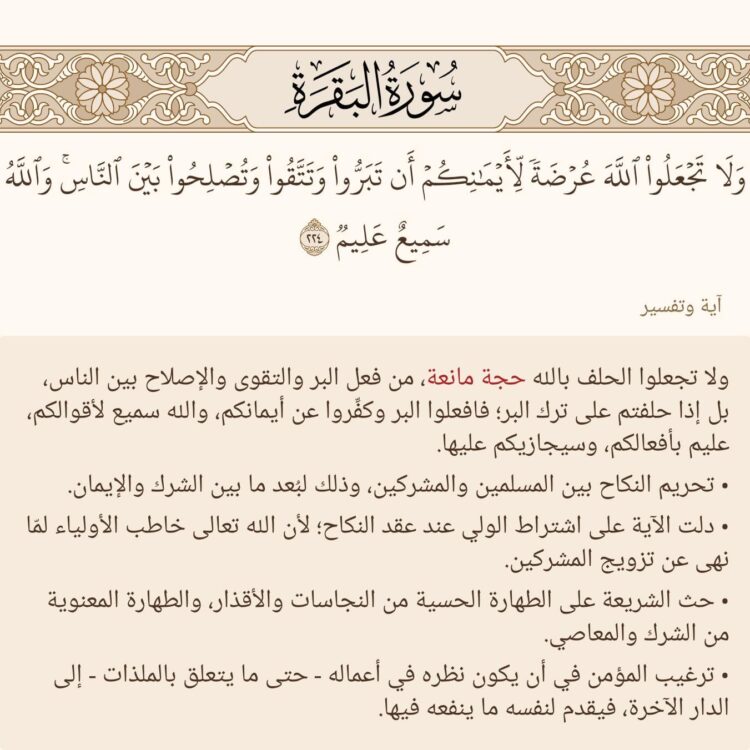 سُورَةُ البَقَرَةِ
وَلَا تَجۡعَلُواْ ٱللَّهَ عُرۡضَةٗ لِّأَيۡمَٰنِكُمۡ أَن تَبَرُّواْ وَتَتَّقُواْ وَتُصۡلِحُواْ بَيۡنَ ٱلنَّاسِۚ وَٱللَّهُ
سَمِيعٌ عَلِيمٞ ٢٢٤
آية وتفسير
ولا تجعلوا الحلف بالله حجة مانعة، من فعل البر والتقوى والإصلاح بين الناس،
بل إذا حلفتم على ترك البر؛ فافعلوا البر وكفِّروا عن أيمانكم، والله سميع لأقوالكم،
عليم بأفعالكم، وسيجازيكم عليها.
• تحريم النكاح بين المسلمين والمشركين، وذلك لبُعد ما بين الشرك والإيمان.
• دلت الآية على اشتراط الولي عند عقد النكاح؛ لأن الله تعالى خاطب الأولياء لمّا
نهى عن تزويج المشركين.
• حث الشريعة على الطهارة الحسية من النجاسات والأقذار، والطهارة المعنوية
من الشرك والمعاصي.
• ترغيب المؤمن في أن يكون نظره في أعماله - حتى ما يتعلق بالملذات - إلى
الدار الآخرة، فيقدم لنفسه ما ينفعه فيها.